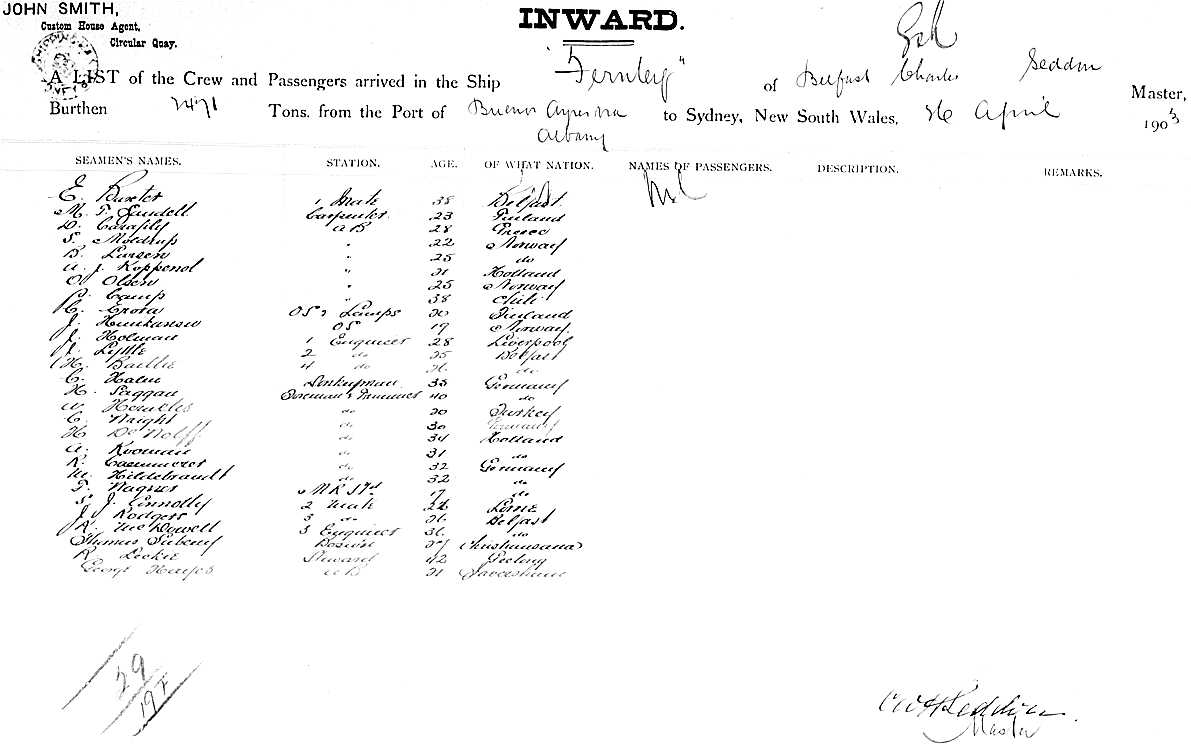 JOHN SMITH,
Custom House Agent,
Circular Quay.
INWARD.
A LIST of the Crew and Passengers arrived in the Ship "Fernley" of Belfast Charles Seddon Master,
Burthen 2471 Tons, from the Port of Buenos Ayres via Albany to Sydney, New South Wales, 26 April 1903
SEAMEN'S NAMES. STATION. AGE. OF WHAT NATION. NAMES OF PASSENGERS. DESCRIPTION. REMARKS.
E. Baxter 1 Mate 38 Belfast Nil
M. F. Sundell Carpenter 23 Finland
D. AB 28 Greece
S. Moldrup " 22 Norway
B. Larsen " 25 do
A. J. Koppenol " 21 Holland
O. Olsen " 25 Norway
C. Camp " 38 Chili
C. Erota OS & Lamps 20 Finland
J. OS 19 Norway
J. Holman 1 Engineer 28 Liverpool
J. Lyttle 2 do 25 Belfast
H. Baillie 4 do 26 do
C. Halm Donkeyman 35 Germany
H. Saggau Fireman & Trimmer 40 do
do 20 Turkey
C. Wright do 30 Germany
H. De Wolff do 34 Holland
A. Kooman do 31 do
K. do 32 Germany
M. Hildebrandt do 32 do
F. Wagner M R Std 17 do
S. J. Connolly 2 Mate 24
J. Rodgers 3 do 26 Belfast
R. McDowell 3 Engineer 36 do
Thomas Bosun 27 Christiansand
R. Leckie Steward 42 Geelong
George Hayes AB 21 Faversham
29
19 F
CWH Seddon
Master